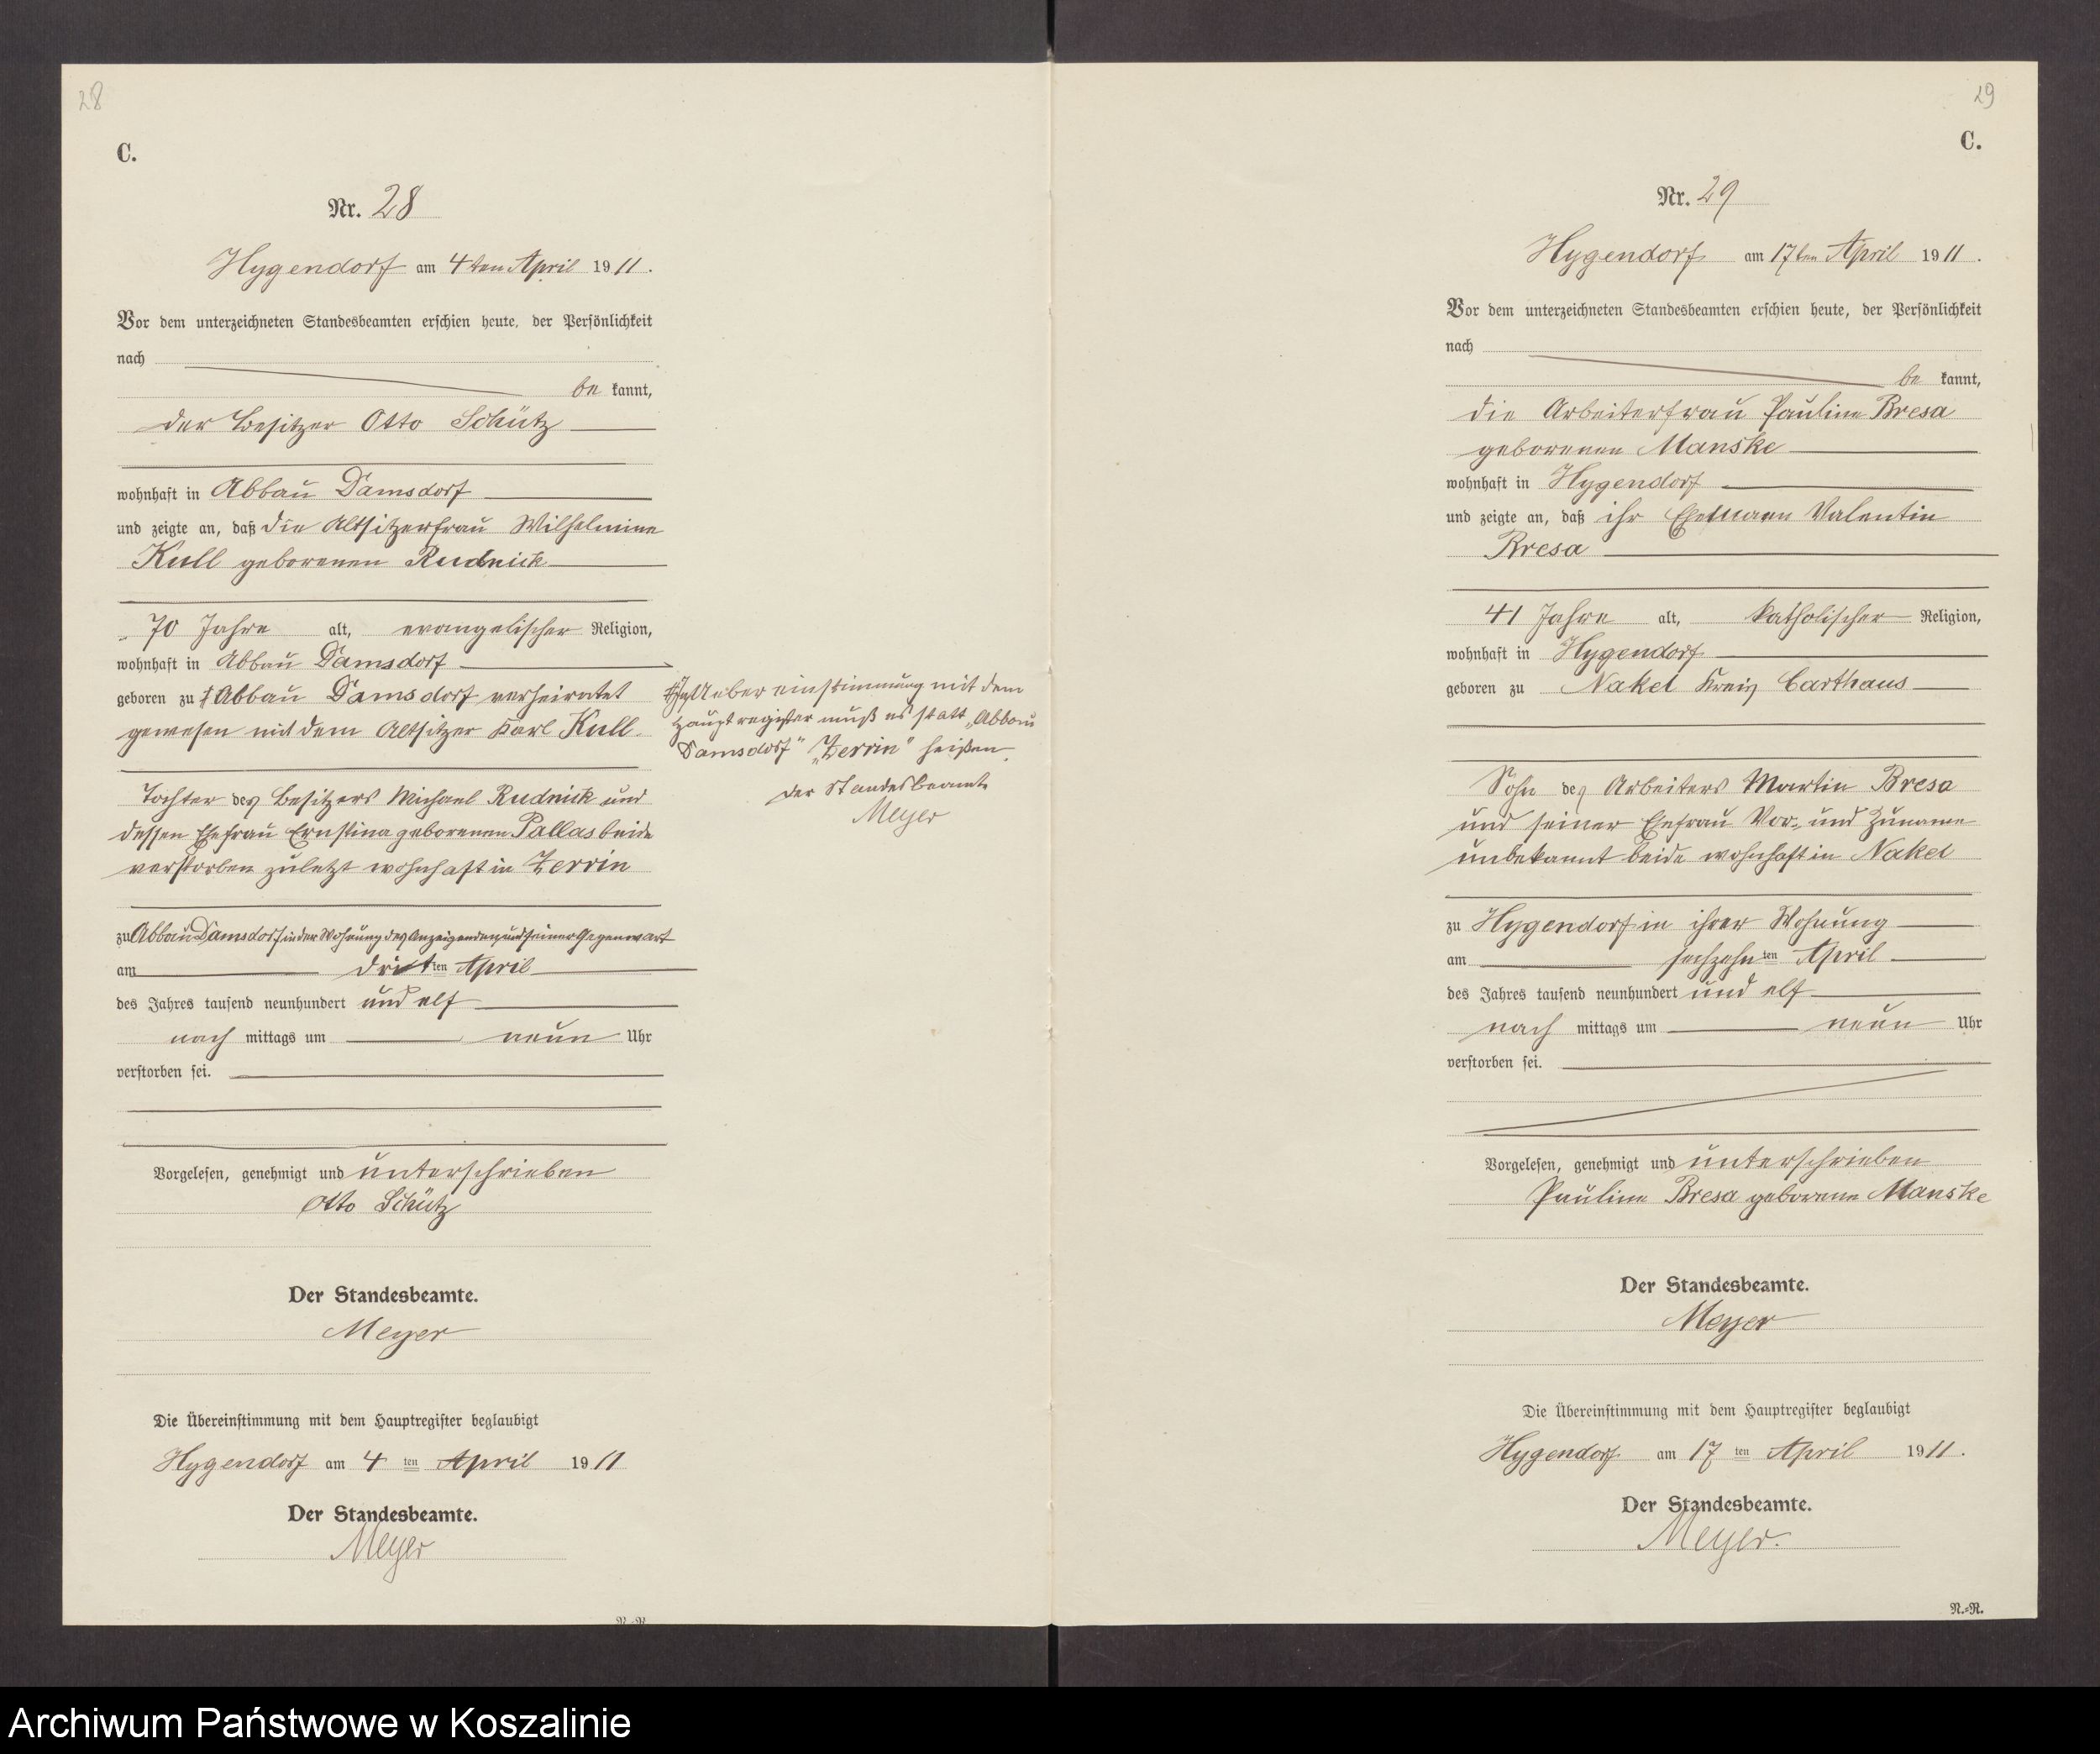 28
C.
Nr. 28
Hygendorf am 4ten April 1911.
Vor dem unterzeichneten Standesbeamten erschien heute, der Persönlichkeit
nach
be kannt,
der Besitzer Otto Schütz
wohnhaft in Abbau Damsdorf
und zeigte an, daß die Altsitzerfrau Wilhelmine
Kull geborenen Rudnick
70 Jahre alt, evangelischer Religion,
wohnhaft in Abbau Damsdorf
geboren zu ‡ Abbau Damsdorf verheiratet
gewesen mit dem Altsitzer Karl Kull
Tochter des Besitzers Michael Rudnick und
dessen Ehefrau Ernstina geborenen Pallas beide
verstorben zuletzt wohnhaft in Zerrin
zu Abbau Damsdorf in der Wohnung des Anzeigenden und seiner Gegenwart
am dritten April
des Jahres tausend neunhundert und elf
nach mittags um neun Uhr
verstorben sei.
Vorgelesen, genehmigt und unterschrieben
Otto Schütz
Der Standesbeamte.
Meyer
Die Übereinstimmung mit dem Hauptregister beglaubigt
Hygendorf am 4 ten April 1911
Der Standesbeamte.
Meyer
‡ In Uebereinstimmung mit dem
Hauptregister muß es statt „Abbau
Damsdorf" „Zerrin" heißen.
Der Standesbeamte
Meyer
29
C.
Nr. 29
Hygendorf am 17ten April 1911.
Vor dem unterzeichneten Standesbeamten erschien heute, der Persönlichkeit
nach
be kannt,
die Arbeiterfrau Pauline Bresa
geborenen Manske
wohnhaft in Hygendorf
und zeigte an, daß ihr Ehemann Valentin
Bresa
41 Jahre alt, katholischer Religion,
wohnhaft in Hygendorf
geboren zu Nakel Kreis Carthaus
Sohn des Arbeiters Martin Bresa
und seiner Ehefrau Vor- und Zuname
unbekannt beide wohnhaft in Nakel
zu Hygendorf in ihrer Wohnung
am sechzehn ten April
des Jahres tausend neunhundert und elf
nach mittags um neun Uhr
verstorben sei.
Vorgelesen, genehmigt und unterschrieben
Pauline Bresa geborene Manske
Der Standesbeamte.
Meyer
Die Übereinstimmung mit dem Hauptregister beglaubigt
Hygendorf am 17 ten April 1911.
Der Standesbeamte.
Meyer.
N.=R.
Archiwum Państwowe w Koszalinie